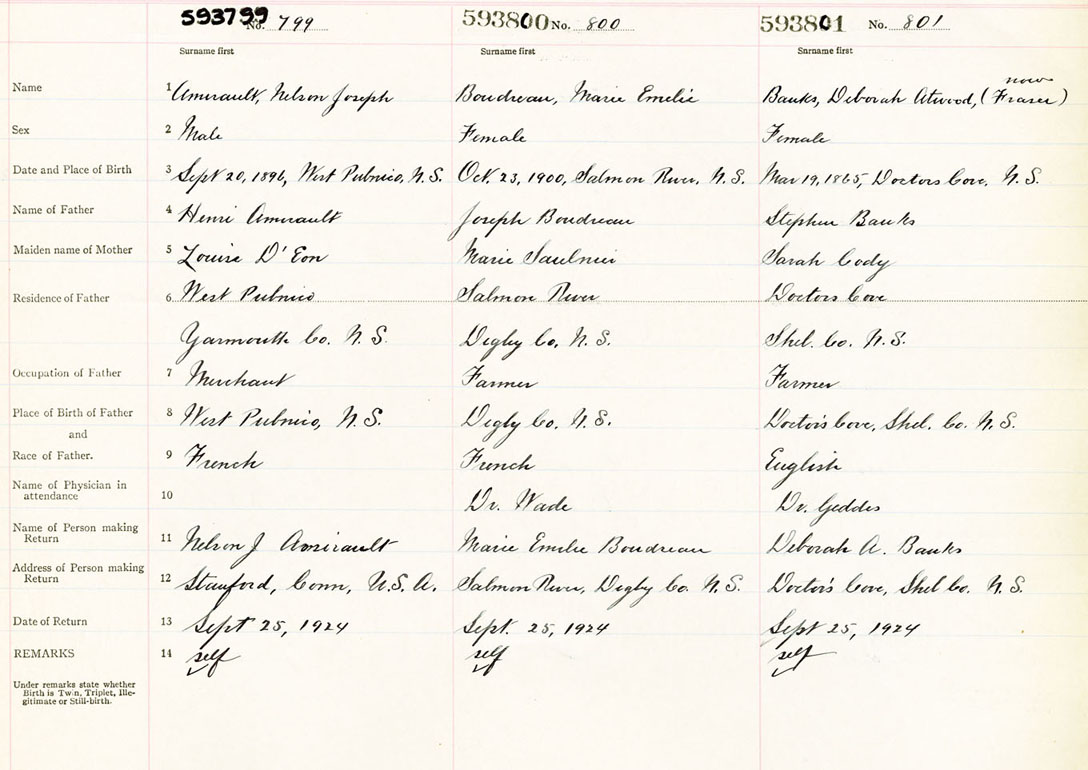 593799 No. 799 593800 No. 800 593801 No. 801
Surname first Surname first Surname first
now
Name 1 Amirault, Nelson Joseph Boudreau, Marie Emelie Banks, Deborah Atwood, (Fraser)
Sex 2 Male Female Female
Date and Place of Birth 3 Sept 20, 1896, West Pubnico, N.S. Oct. 23, 1900, Salmon River, N.S. Mar 19, 1865, Doctors Cove, N.S.
Name of Father 4 Henri Amirault Joseph Boudreau Stephen Banks
Maiden name of Mother 5 Louise D'Eon Marie Saulnier Sarah Cody
Residence of Father 6 West Pubnico Salmon River Doctors Cove
Yarmouth Co. N.S. Digby Co, N.S. Shel. Co. N.S.
Occupation of Father 7 Merchant Farmer Farmer
Place of Birth of Father 8 West Pubnico, N.S. Digby Co. N.S. Doctor's Cove, Shel. Co. N.S.
and
Race of Father. 9 French French English
Name of Physician in
attendance 10 Dr. Wade Dr. Geddes
Name of Person making
Return 11 Nelson J Amirault Marie Emelie Boudreau Deborah A. Banks
Address of Person making
Return 12 Stamford, Conn, U.S.A. Salmon River, Digby Co. N.S. Doctor's Cove, Shel Co. N.S.
Date of Return 13 Sept 25, 1924 Sept. 25, 1924 Sept 25, 1924
REMARKS 14 self self self
Under remarks state whether
Birth is Twin, Triplet, Ille-
gitimate or Still-birth.